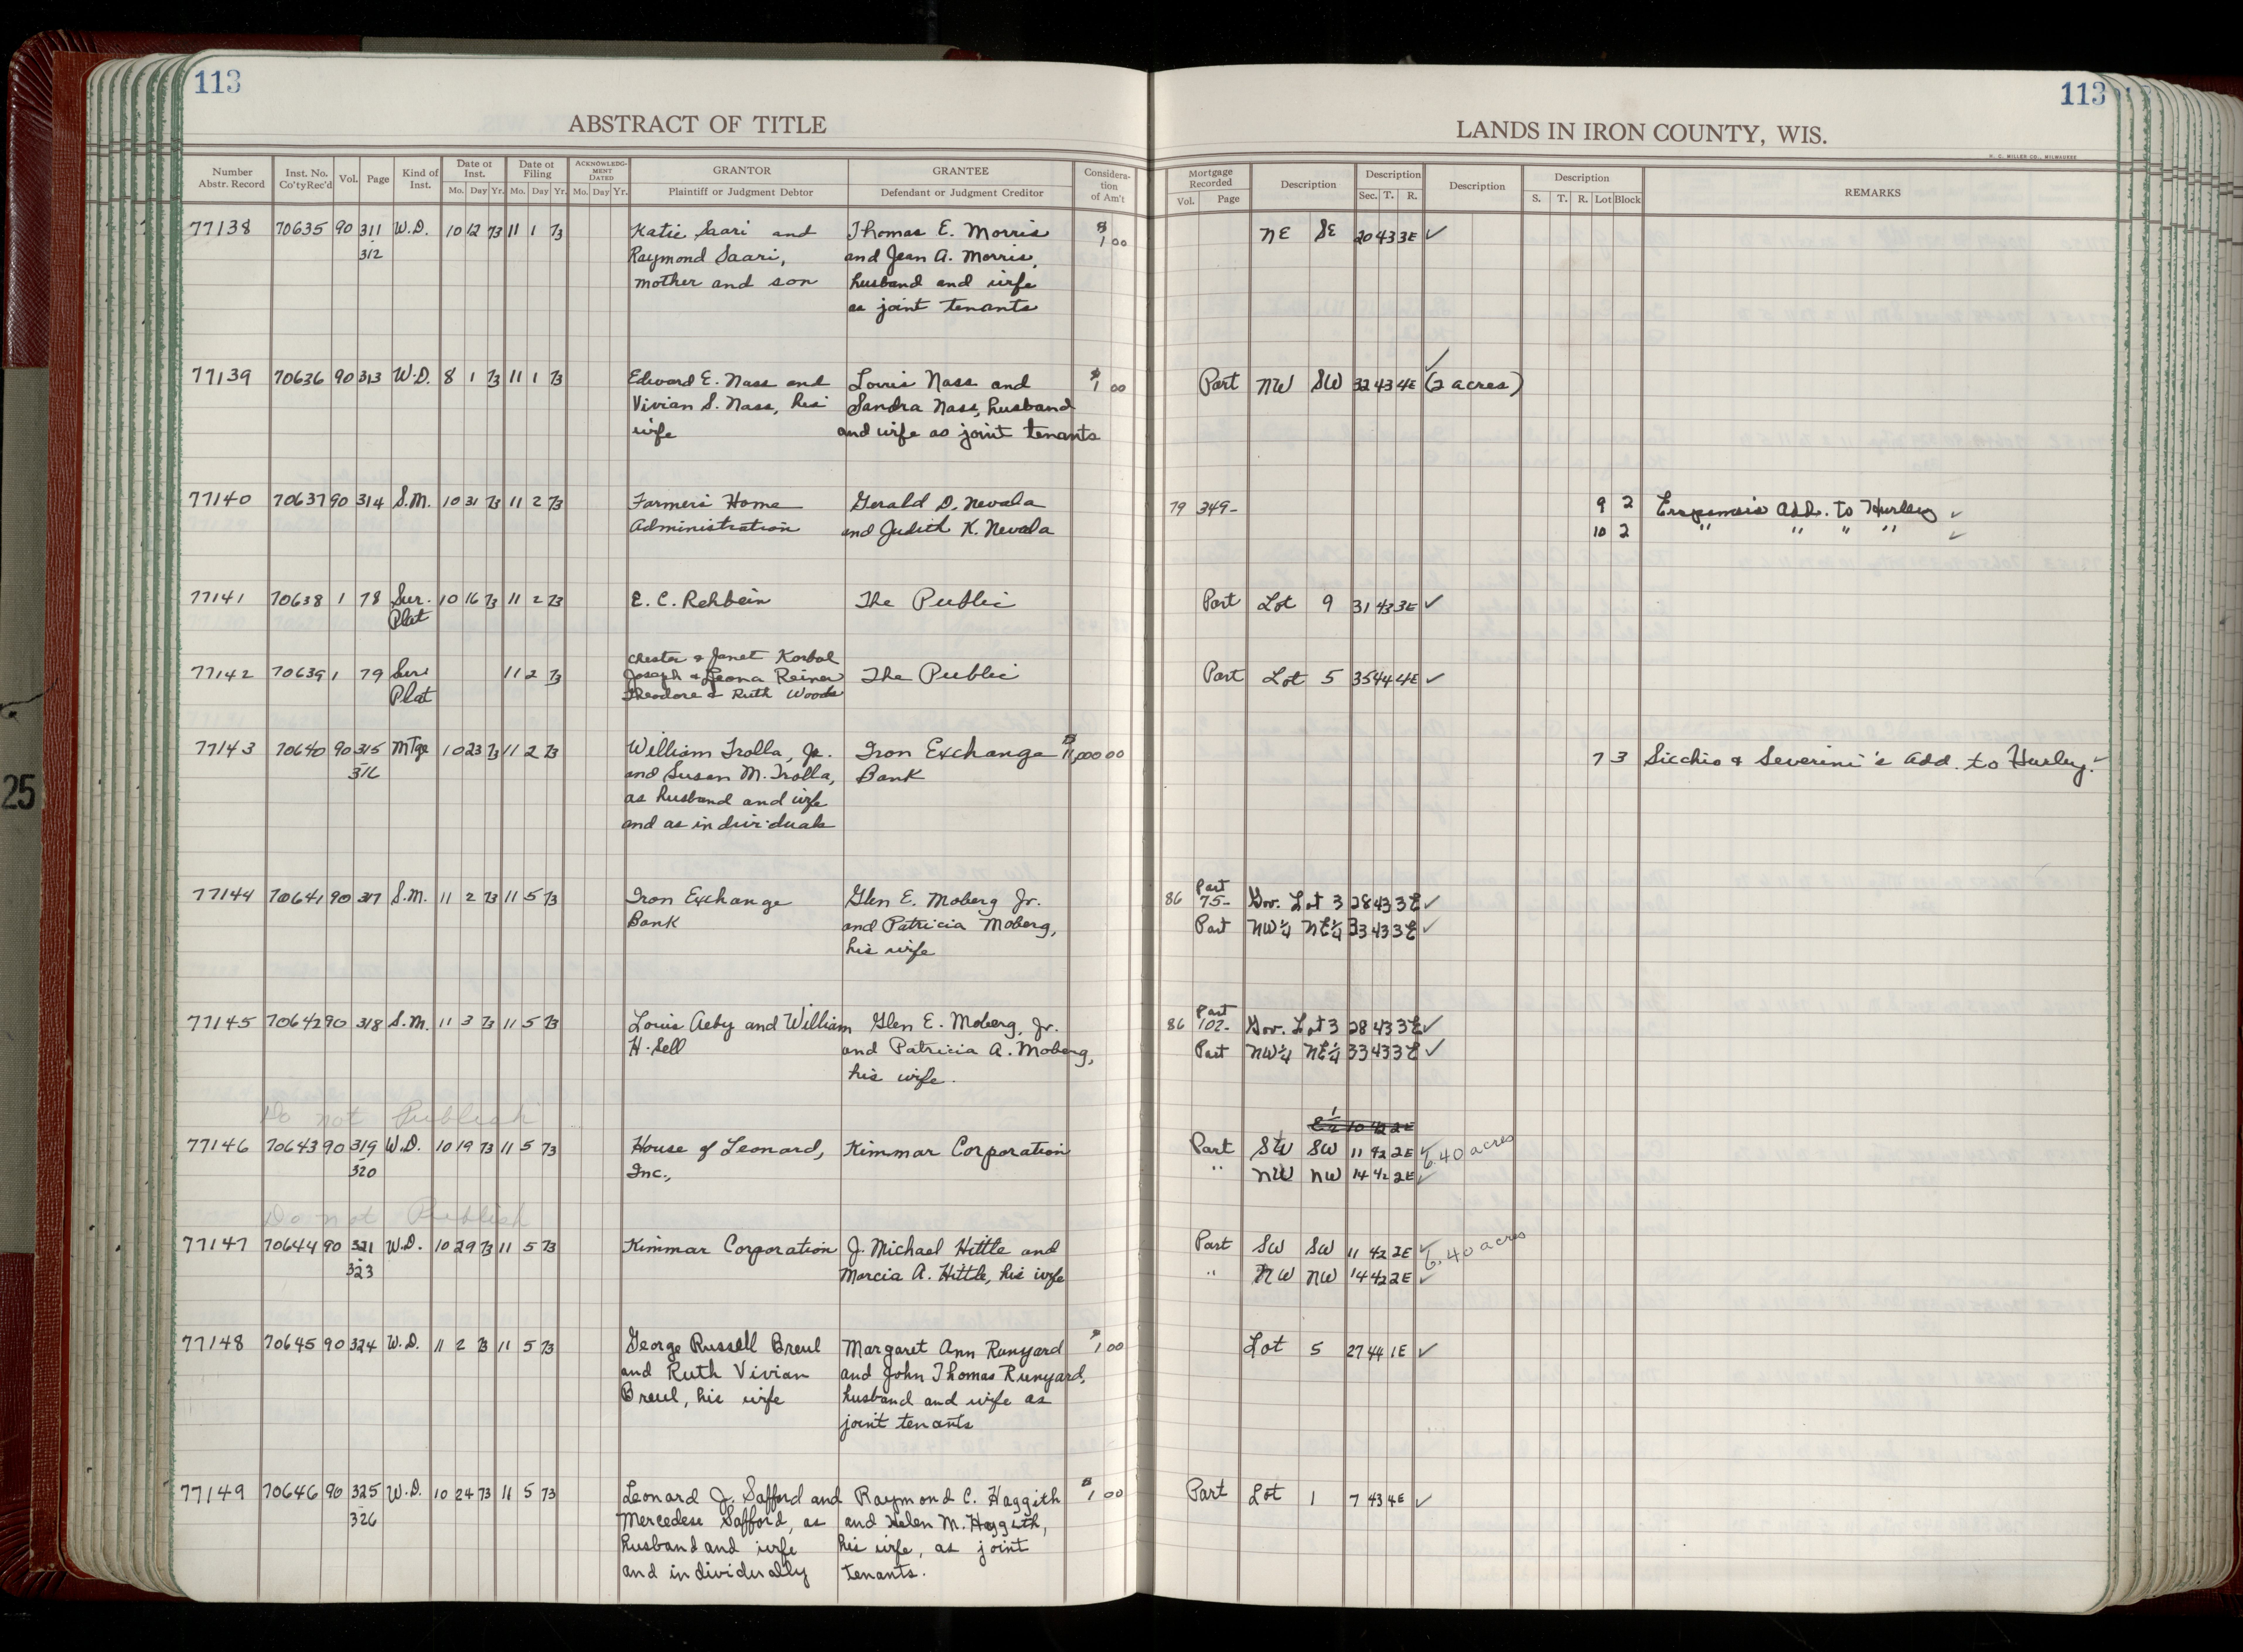 113
113
ABSTRACT OF TITLE
LANDS IN IRON COUNTY, WIS.
H. C. MILLER CO., MILWAUKEE
Number Abstr. Record | Inst. No. Co'ty Rec'd | Vol. | Page | Kind of Inst. | Date of Inst. Mo. Day Yr. | Date of Filing Mo. Day Yr. | ACKNOWLEDGMENT DATED Mo. Day Yr. | GRANTOR Plaintiff or Judgment Debtor | GRANTEE Defendant or Judgment Creditor | Consideration of Am't | Mortgage Recorded Vol. Page | Description | Description Sec. T. R. | Description | Description S. T. R. Lot Block | REMARKS
77138 70635 90 311 W.D. 10 12 73 11 1 73 Katie Saari and Thomas E. Morris $1 00 NE SE 20 43 3E ✓
312 Raymond Saari, and Jean A. Morris,
mother and son husband and wife
as joint tenants
77139 70636 90 313 W.D. 8 1 73 11 1 73 Edward E. Nass and Louis Nass and $1 00 Part NW SW 32 43 4E (2 acres) ✓
Vivian S. Nass, his Sandra Nass, husband
wife and wife as joint tenants
77140 70637 90 314 S.M. 10 31 73 11 2 73 Farmers Home Gerald D. Nevala 79 349- 9 2 Add. to Hurley ✓
Administration and Judith K. Nevala 10 2 " " " " ✓
77141 70638 1 78 Sur. 10 16 73 11 2 73 E. C. Rehbein The Public Part Lot 9 31 43 3E ✓
Plat
Chester & Janet Korbal
77142 70639 1 79 Sur. 11 2 73 Joseph & Leona Reiner The Public Part Lot 5 35 44 4E ✓
Plat Theodore & Ruth Woods
77143 70640 90 315 Mtge 10 23 73 11 2 73 William Trolla, Jr. Iron Exchange $11,000 00 7 3 Sicchio & Severini's Add. to Hurley. ✓
316 and Susan M. Trolla, Bank
as husband and wife
and as individuals
Part
77144 70641 90 317 S.M. 11 2 73 11 5 73 Iron Exchange Glen E. Moberg Jr. 86 75- Gov. Lot 3 28 43 3E ✓
Bank and Patricia Moberg, Part NW¼ NE¼ 33 43 3E ✓
his wife
Part
77145 70642 90 318 S.M. 11 3 73 11 5 73 Louis Aeby and William Glen E. Moberg, Jr. 86 102- Gov. Lot 3 28 43 3E ✓
H. Sell and Patricia A. Moberg, Part NW¼ NE¼ 33 43 3E ✓
his wife.
Do not Publish E½ 10 42 2E
77146 70643 90 319 W.D. 10 19 73 11 5 73 House of Leonard, Kimmar Corporation Part SW SW 11 42 2E ✓ 6.40 acres
320 Inc., " NW NW 14 42 2E ✓
Do not Publish
77147 70644 90 321 W.D. 10 29 73 11 5 73 Kimmar Corporation J. Michael Hittle and Part SW SW 11 42 2E ✓ 6.40 acres
323 Marcia A. Hittle, his wife " NW NW 14 42 2E ✓
77148 70645 90 324 W.D. 11 2 73 11 5 73 George Russell Breul Margaret Ann Runyard $1 00 Lot 5 27 44 1E ✓
and Ruth Vivian and John Thomas Runyard,
Breul, his wife husband and wife as
joint tenants
77149 70646 90 325 W.D. 10 24 73 11 5 73 Leonard J. Safford and Raymond C. Haggith $1 00 Part Lot 1 7 43 4E ✓
326 Mercedese Safford, as and Helen M. Haggith,
husband and wife his wife, as joint
and individually tenants.
25